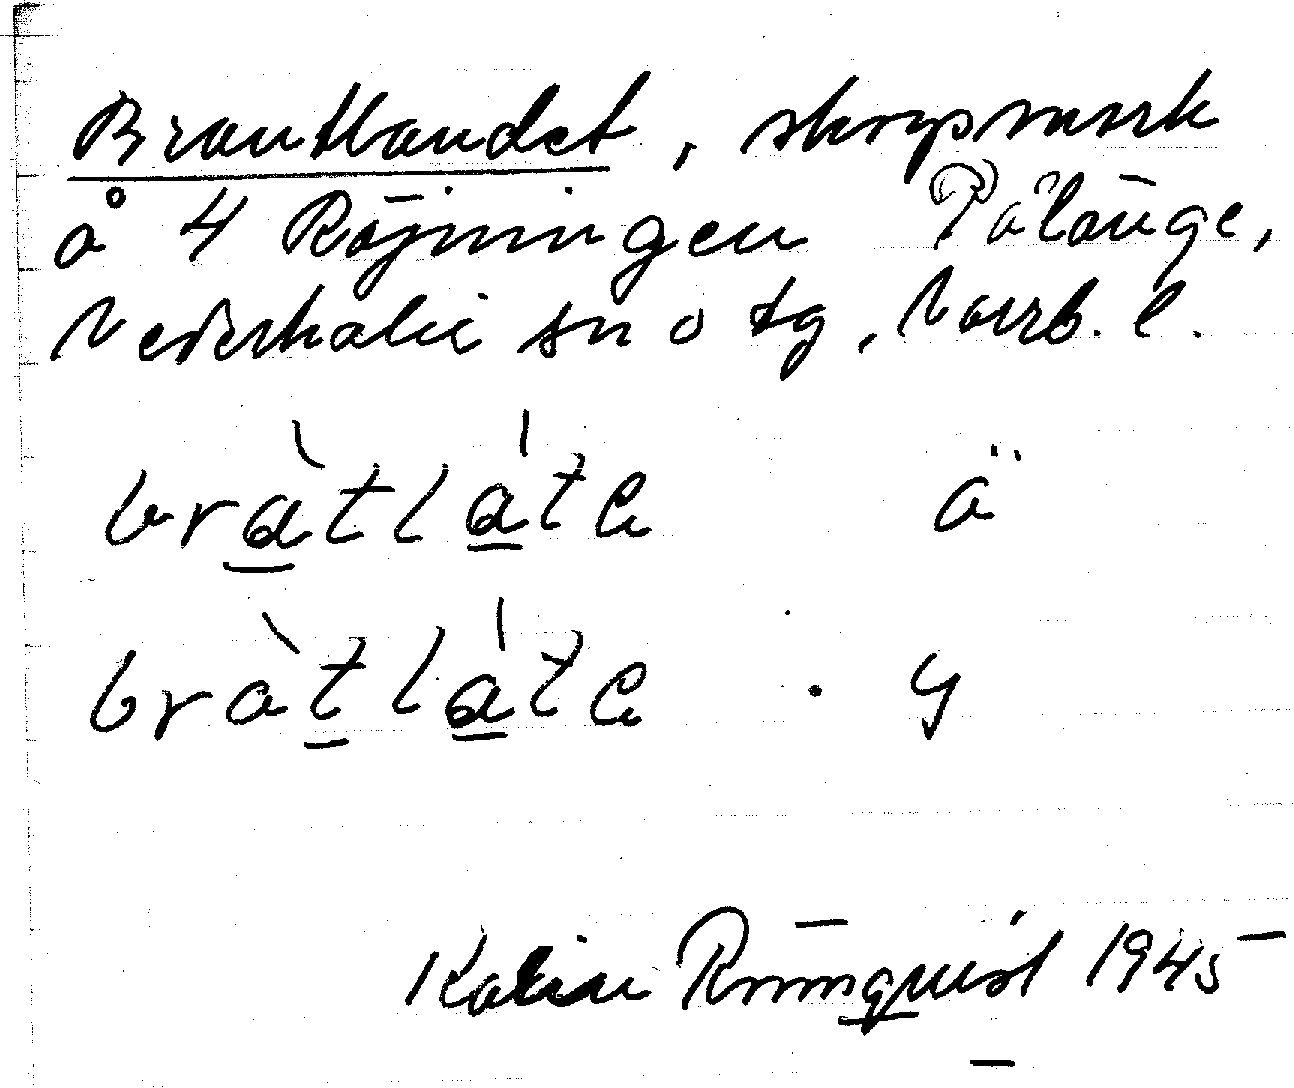 Brantlandet, skogsmark
å 4 Röjningen Pålänge,
Nederkalix sn o tg, Norrb. l.
bràtláte ä
bràtláte . y
Karin Rönnqvist 1945